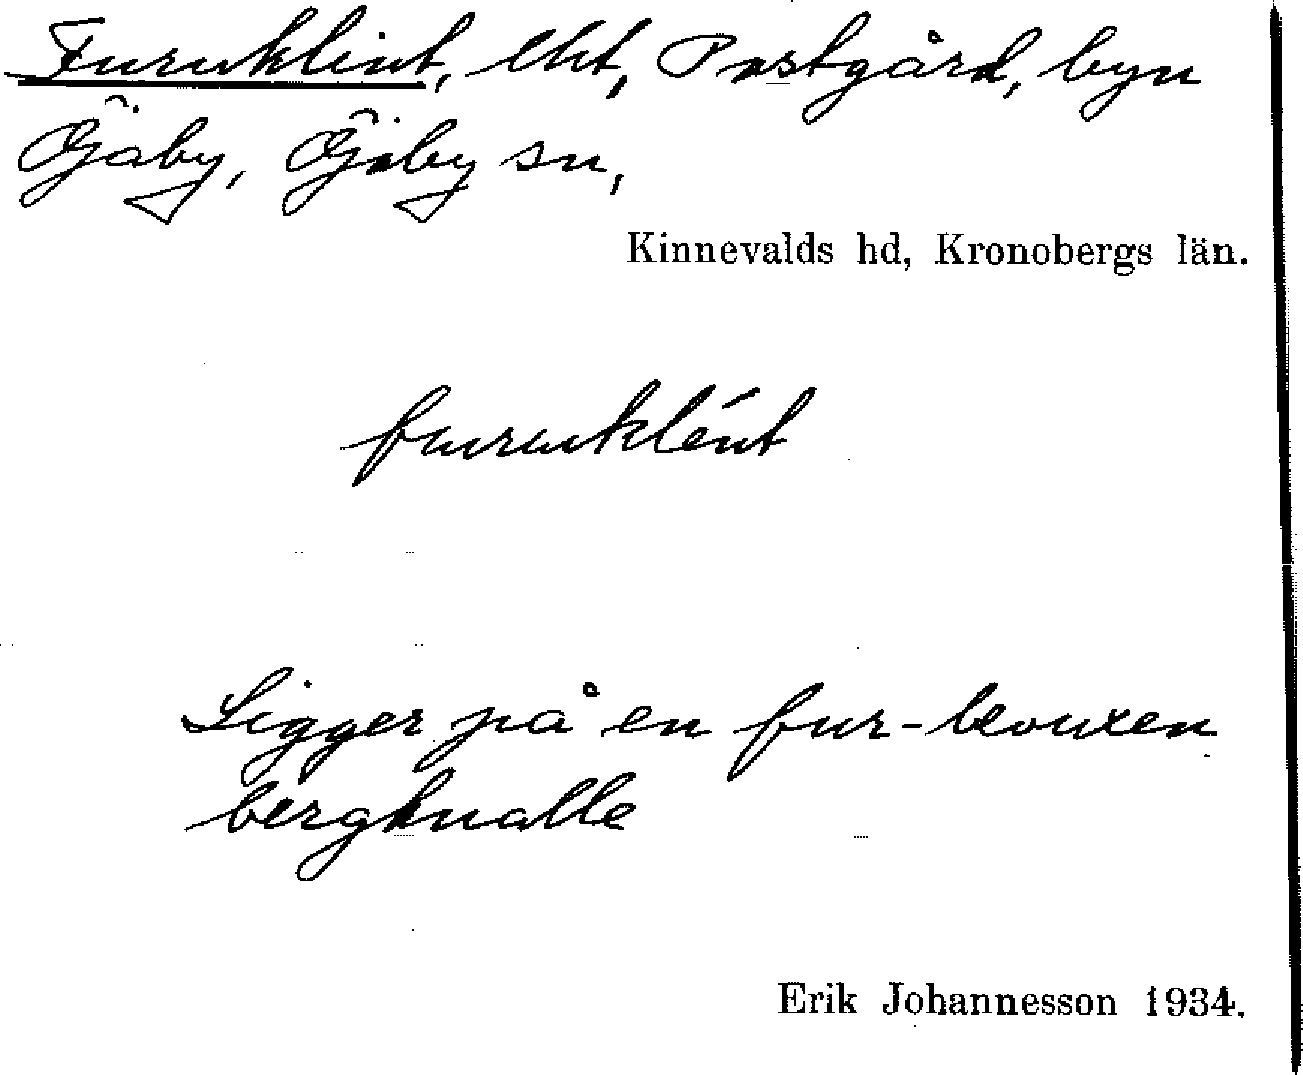 Furuklint, lht, Postgård, byn
Öjaby, Öjaby sn,
Kinnevalds hd, Kronobergs län.
furuklént
Ligger på en fur-bevuxen
bergknalle
Erik Johannesson 1934.